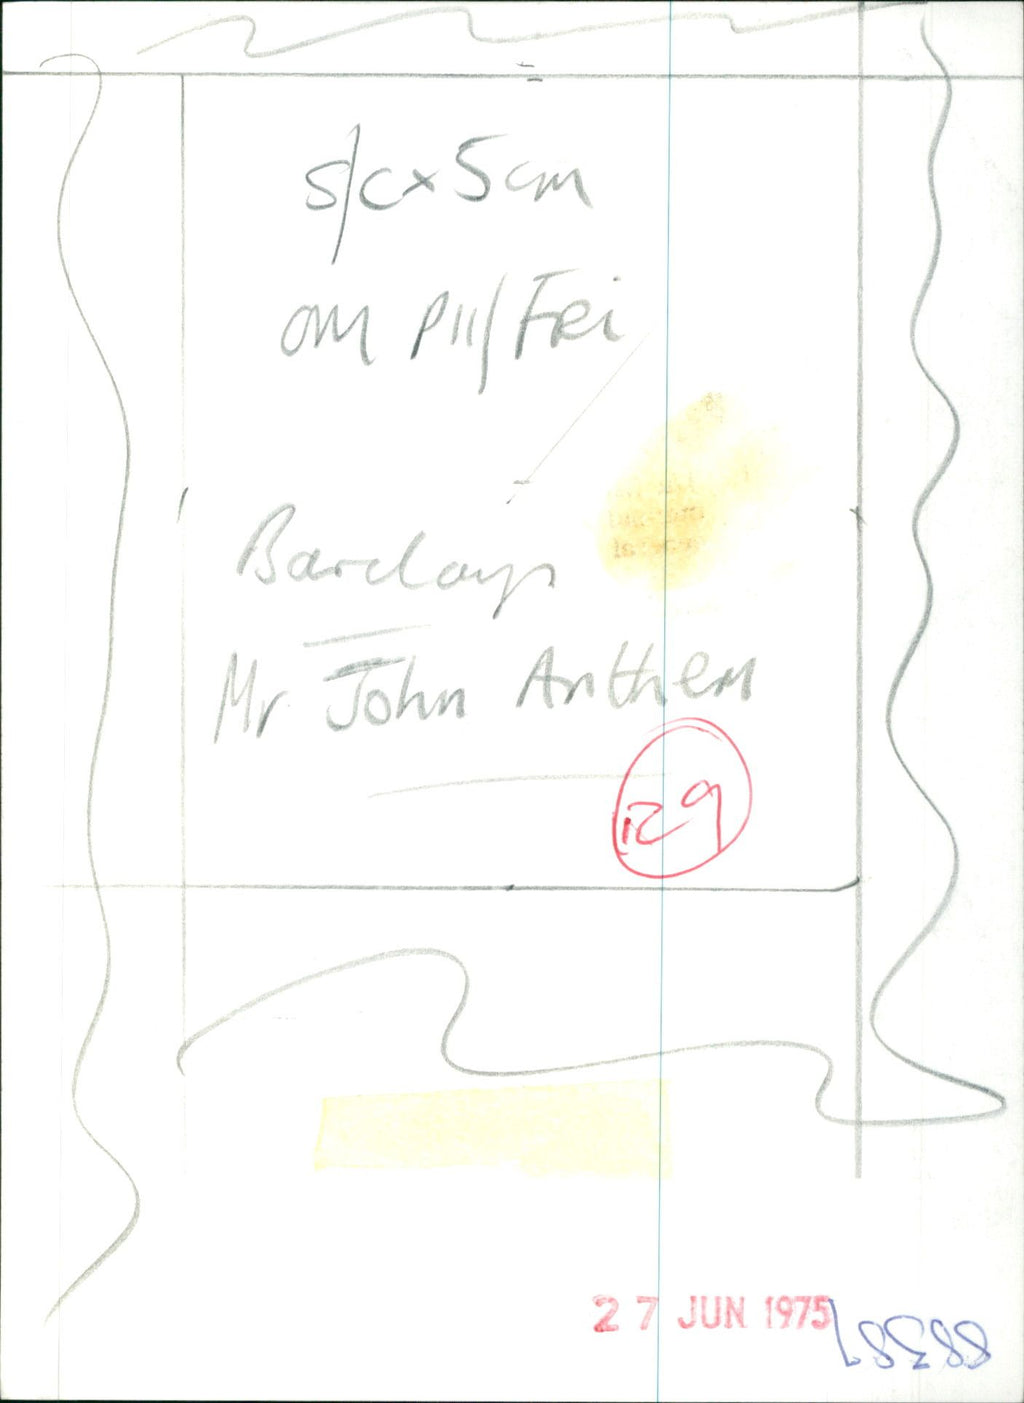 s/c x 5cm
om P11/Fri
Barclays
Mr John Anthem
129
27 JUN 1975
88389